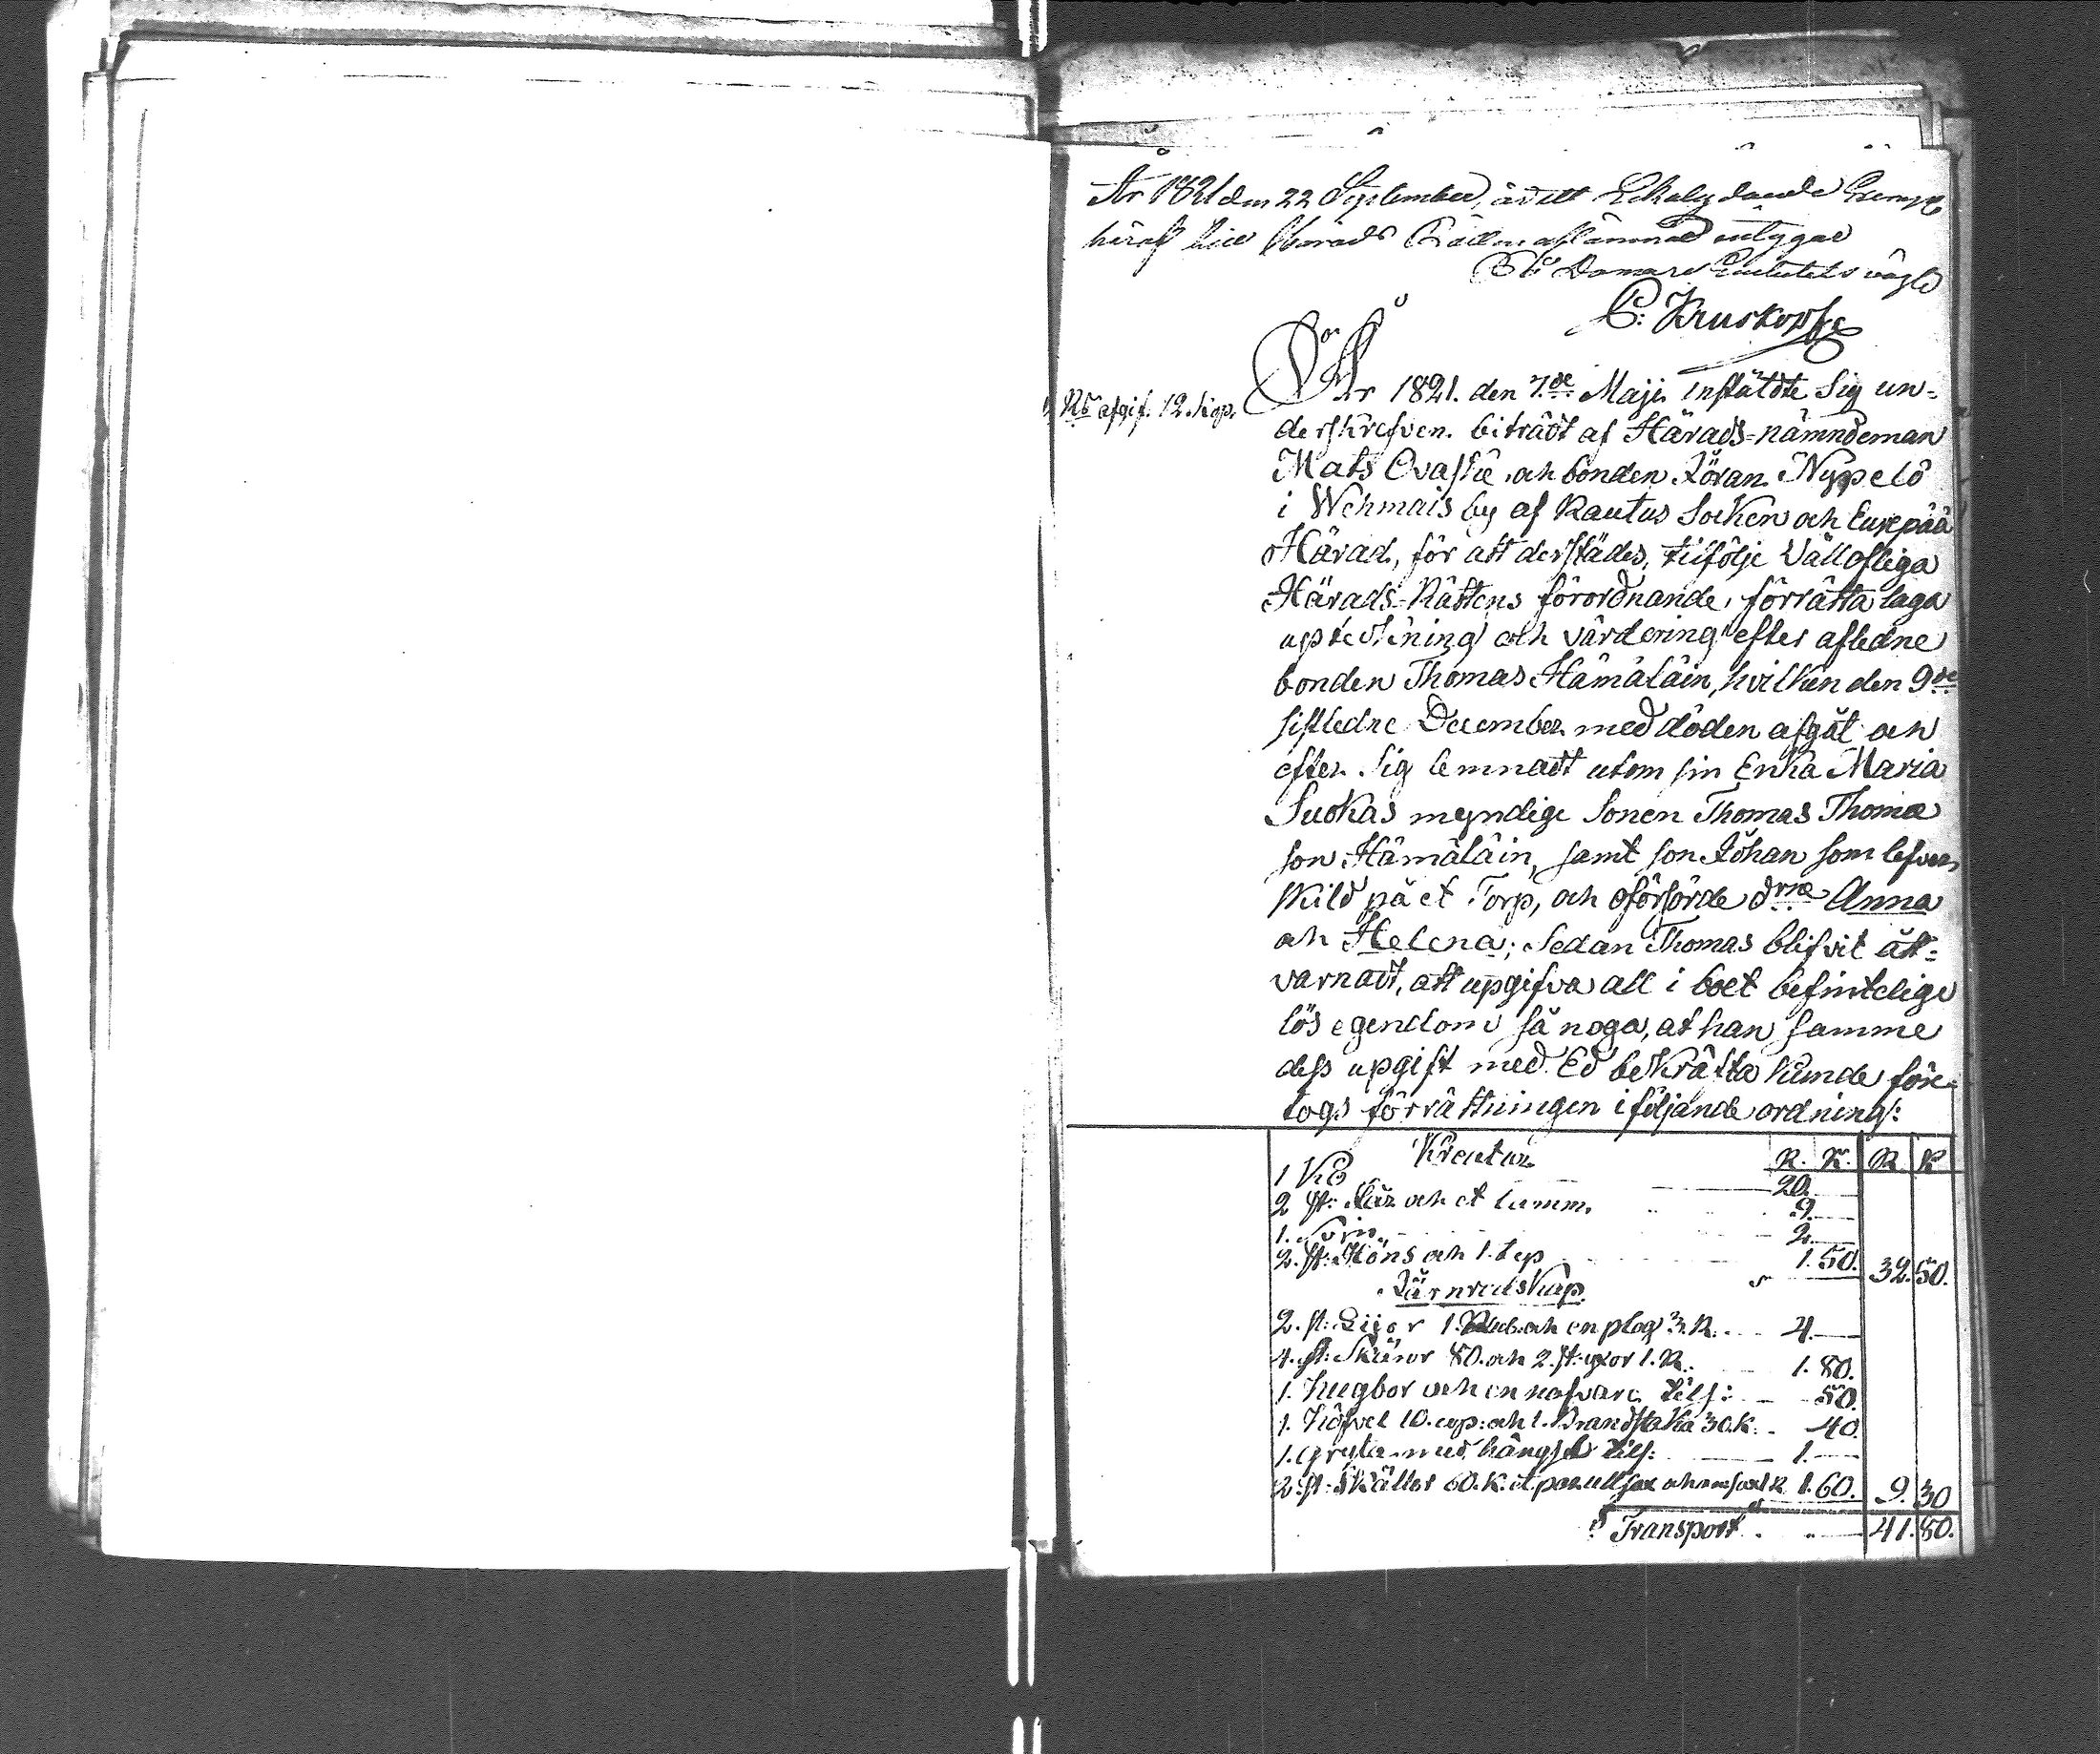 År 1821 den 22 September, är ett Lika lydande Exempl.
häraf till Härads Rätten aflämnad intygar
På Domare Embetets vägnar
C: Kruskopf
År 1821. den 7.de Maji instälde Sig un-
N:o afgift. 12. kop.
derskrefven. biträdt af Härads-nämndeman
Mats Ovaska, och bonden Jöran Nypelö
i Wehmais by af Rautus Socken och Eurepää
Härad, för att derstädes, tilfölje Vällofliga
Härads-Rättens förordnande, förrätta laga
upteckning och värdering efter afledne
bonden Thomas Hämäläin, hvilken den 9de
sistledne December med döden afgåt och
efter Sig lemnadt utom sin Enka Maria
Suokas myndige Sonen Thomas Thomæ
son Hämäläin, samt son Johan som lefver
skild på et Torp, och oförsörde drne Anna
och Helena; Sedan Thomas blifvit åt-
varnadt, att upgifva all i boet befintelige
lös egendom så noga, at han samme
dess upgift med Ed bekräfta kunde före-
togs förrättningen i följande ordning:
Kreatur R. K. R K
1 Ko 20.
2 st: får och et lamm. 9.
1. Svin 2.
2. st: Höns och 1. tup 1. 50. 32. 50.
Järnredskap
2. st: Liior 1. Rub. och en plog 3. R. 4.
4. st: Skäror 80. och 2. st: yxor 1. R. 1. 80.
1. hugbor och en nafvare tils: 50.
1. Höfvel 10. cop: och 1. Brandstaka 30. K. 40.
1. gryta med hängsel tils: 1.
2. st: Skällor 60. K. et par ullsax och 1. R 1. 60. 9. 30
Transport 41. 80.